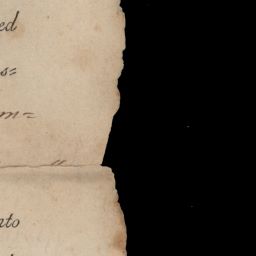 ed
s=
m=
nto